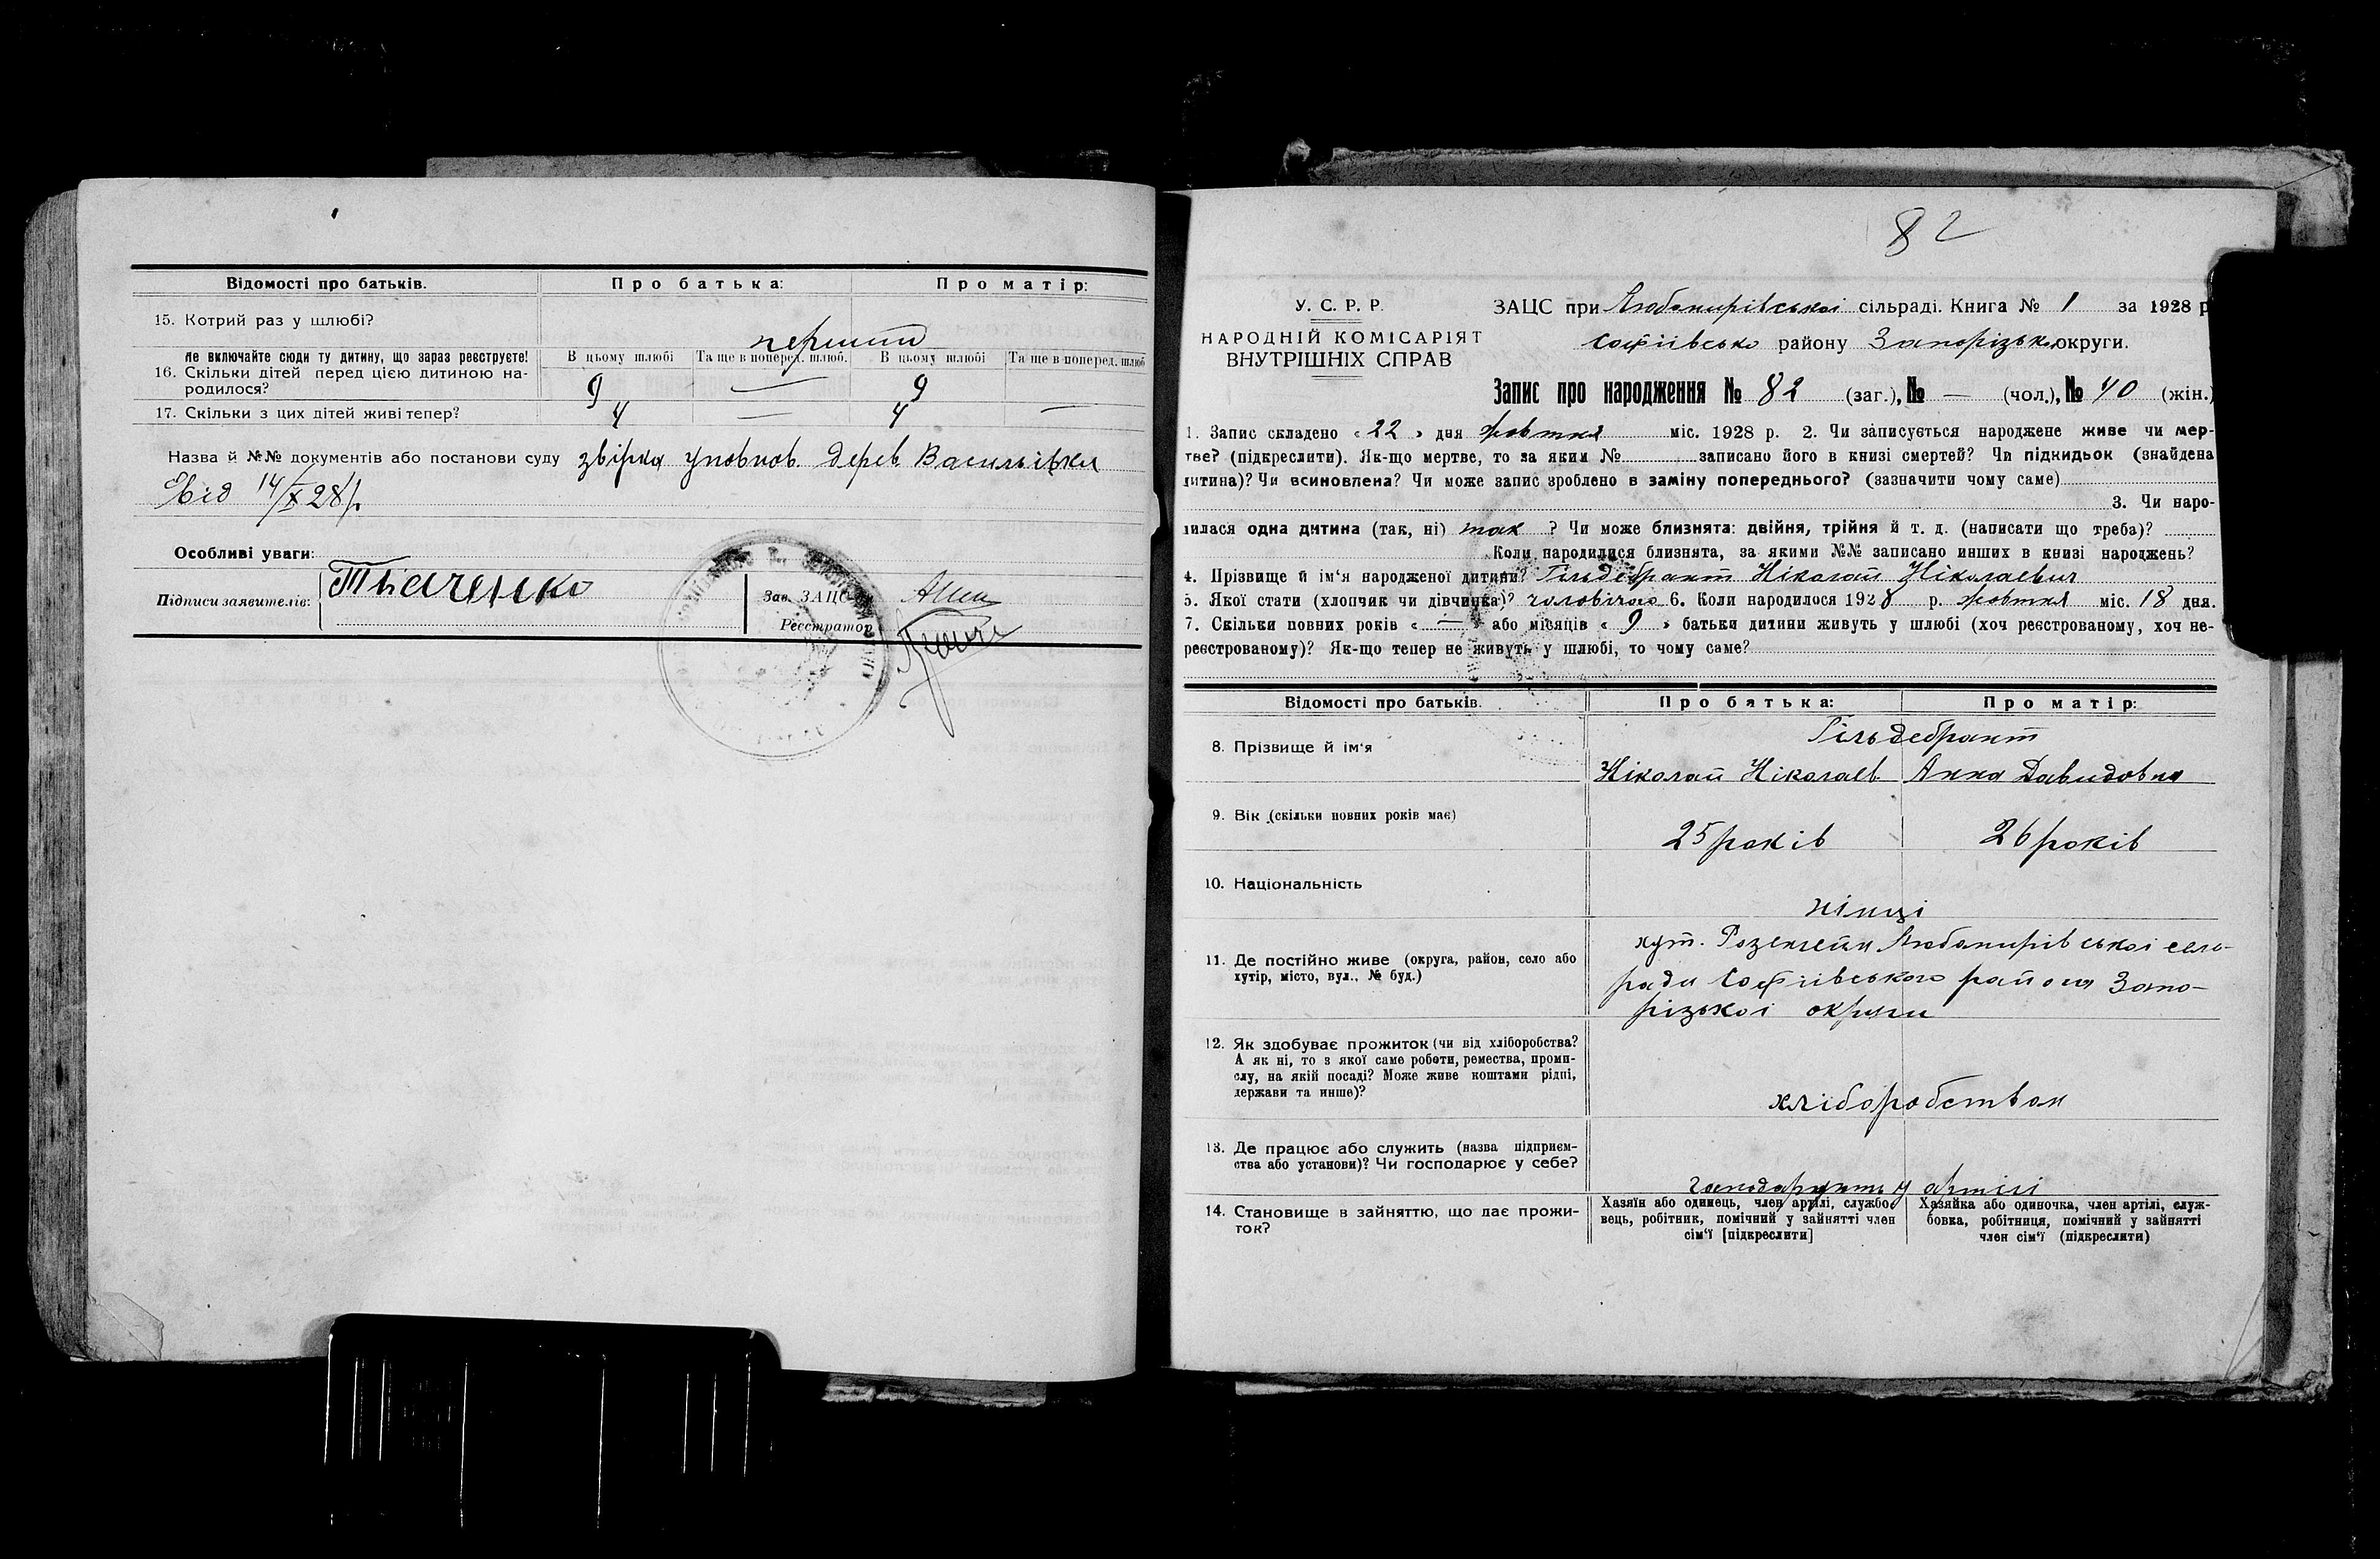 Відомості про батьків. Про батька: Про матір:
15. Котрий раз у шлюбі?
перший
Не включайте сюди ту дитину, що зараз реєструєте! В цьому шлюбі Та ще в поперед. шлюб. В цьому шлюбі Та ще в поперед. шлюб
16. Скільки дітей перед цією дитиною на-
родилося? 9 — 9
17. Скільки з цих дітей живі тепер? 4 — 4 —
Назва й №№ документів або постанови суду звірка уповнов. дерев Васильівки
від 14/X 28 р.
Особливі уваги:
Підписи заявителів: Ткаченко Зав. ЗАЦС-у
Реєстратор
82
У. С. Р. Р.
НАРОДНІЙ КОМІСАРІЯТ
ВНУТРІШНІХ СПРАВ
ЗАЦС при Любомирівської сільраді. Книга № 1 за 1928 р
Софіівсько району Запорізько округи.
Запис про народження № 82 (заг.), № — (чол.), № 40 (жін.)
1. Запис складено « 22 » дня жовтня міс. 1928 р. 2. Чи записується народжене живе чи мер-
тве? (підкреслити). Як-що мертве, то за яким № записано його в книзі смертей? Чи підкидьок (знайдена
дитина)? Чи всиновлена? Чи може запис зроблено в заміну попереднього? (зазначити чому саме)
3. Чи наро-
дилася одна дитина (так, ні) так ? Чи може близнята: двійня, трійня й т. д. (написати що треба)?
Коли народилися близнята, за якими №№ записано инших в книзі народжень?
4. Прізвище й ім'я народженої дитини? Гільдебрант Ніколай Ніколаевич
5. Якої стати (хлопчик чи дівчинка)? чоловічого 6. Коли народилося 1928 р. жовтня міс. 18 дня.
7. Скільки повних років « — » або місяців « 9 » батьки дитини живуть у шлюбі (хоч реєстрованому, хоч не-
реєстрованому)? Як-що тепер не живуть у шлюбі, то чому саме?
Відомості про батьків. Про батька: Про матір:
Гільдебрант
8. Прізвище й ім'я
Ніколай Ніколаев. Анна Давидовна
9. Вік (скільки повних років має)
25 років 26 років
10. Національність
німці
хут. Розенгейм Любомирівської сель-
11. Де постійно живе (округа, район, село або
хутір, місто, вул., № буд.)
ради Софіівського району Запо-
різької округи
12. Як здобуває прожиток (чи від хліборобства?
А як ні, то з якої саме роботи, ремества, проми-
слу, на якій посаді? Може живе коштами рідні,
держави та инше)?
хліборобством
13. Де працює або служить (назва підприєм-
ства або установи)? Чи господарює у себе?
господарюють у артілі
14. Становище в зайняттю, що дає прожи-
ток?
Хазяїн або одинець, член артілі, службо-
вець, робітник, помічний у зайнятті член
сім'ї [підкреслити]
Хазяйка або одиночка, член артілі, служ-
бовка, робітниця, помічний у зайнятті
член сім'ї (підкреслити)